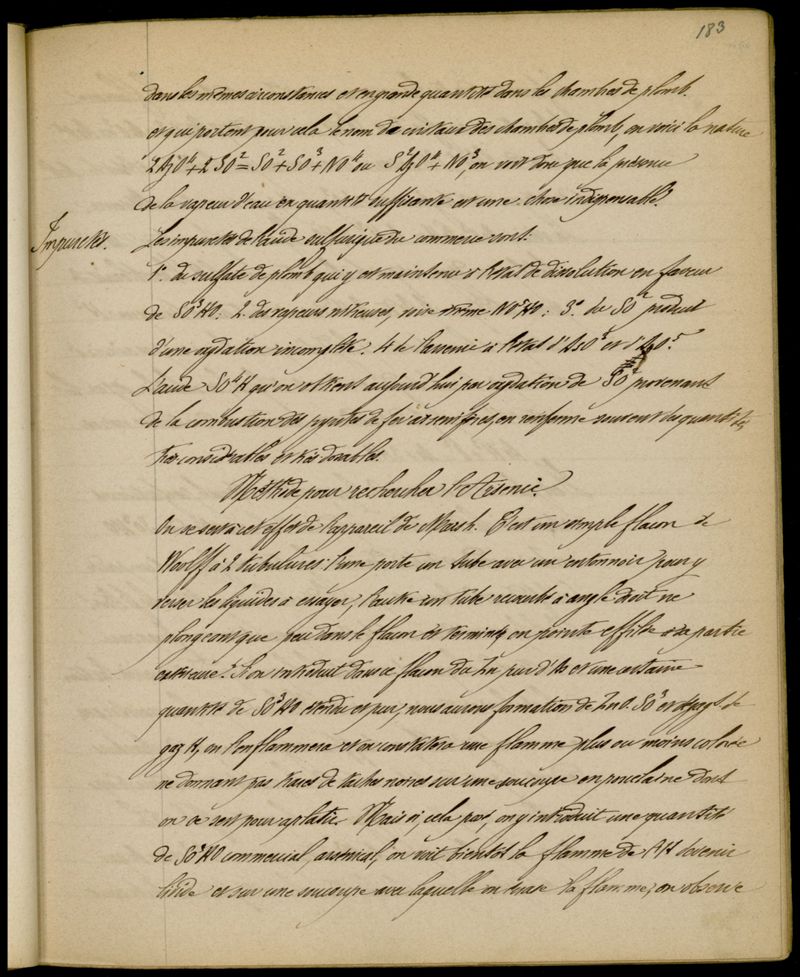 183
dans les mêmes circonstances et en grande quantité dans les chambres de plomb
et qui portent pour cela le nom de cristaux des chambres de plomb, en voici la nature
2 AzO⁴ + 2 SO² = SO² + SO³ + NO⁴ ou S²AzO⁴ + NO³, on voit donc que la présence
de la vapeur d'eau en quantité suffisante est une chose indispensable.
Impuretés. Les impuretés de l'acide sulfurique du commerce sont.
1° du sulfate de plomb qui y est maintenu à l'état de dissolution en faveur
de SO³HO: 2. des vapeurs nitreuses, voire même NO⁵HO: 3° du SO² produit
d'une oxydation incomplète. 4 de l'arsenic à l'état d'AsO³ et d'AsO⁵.
L'acide SO⁴H qu'on obtient aujourd'hui par oxydation de SO² provenant
de la combustion des pyrites de fer arsenifères, en renferme souvent des quantités
très considérables et très dosables.
Méthode pour rechercher l'Arsenic.
On se sert à cet effet de l'appareil de Marsh. C'est un simple flacon de
Woolff à 2 tubulures: l'une porte un tube avec un entonnoir pour y
verser les liquides à essayer, l'autre un tube recourbé à angle droit ne
plongeant que peu dans le flacon et terminé en pointe effilée à sa partie
extérieure. Si on introduit dans ce flacon du Zn pur d'As et une certaine
quantité de SO³HO étendu et pur, nous aurons formation de ZnO SO³ et dégagt de
gaz H, on l'enflammera et on constatera une flamme plus ou moins colorée
ne donnant pas traces de taches noires sur une soucoupe en porcelaine dont
on se sert pour aplatir. Mais si, cela fait, on y introduit une quantité
de SO³HO commercial, arsenical, on voit bientôt la flamme de H devenir
livide et sur une soucoupe avec laquelle on écrase la flamme, on observe